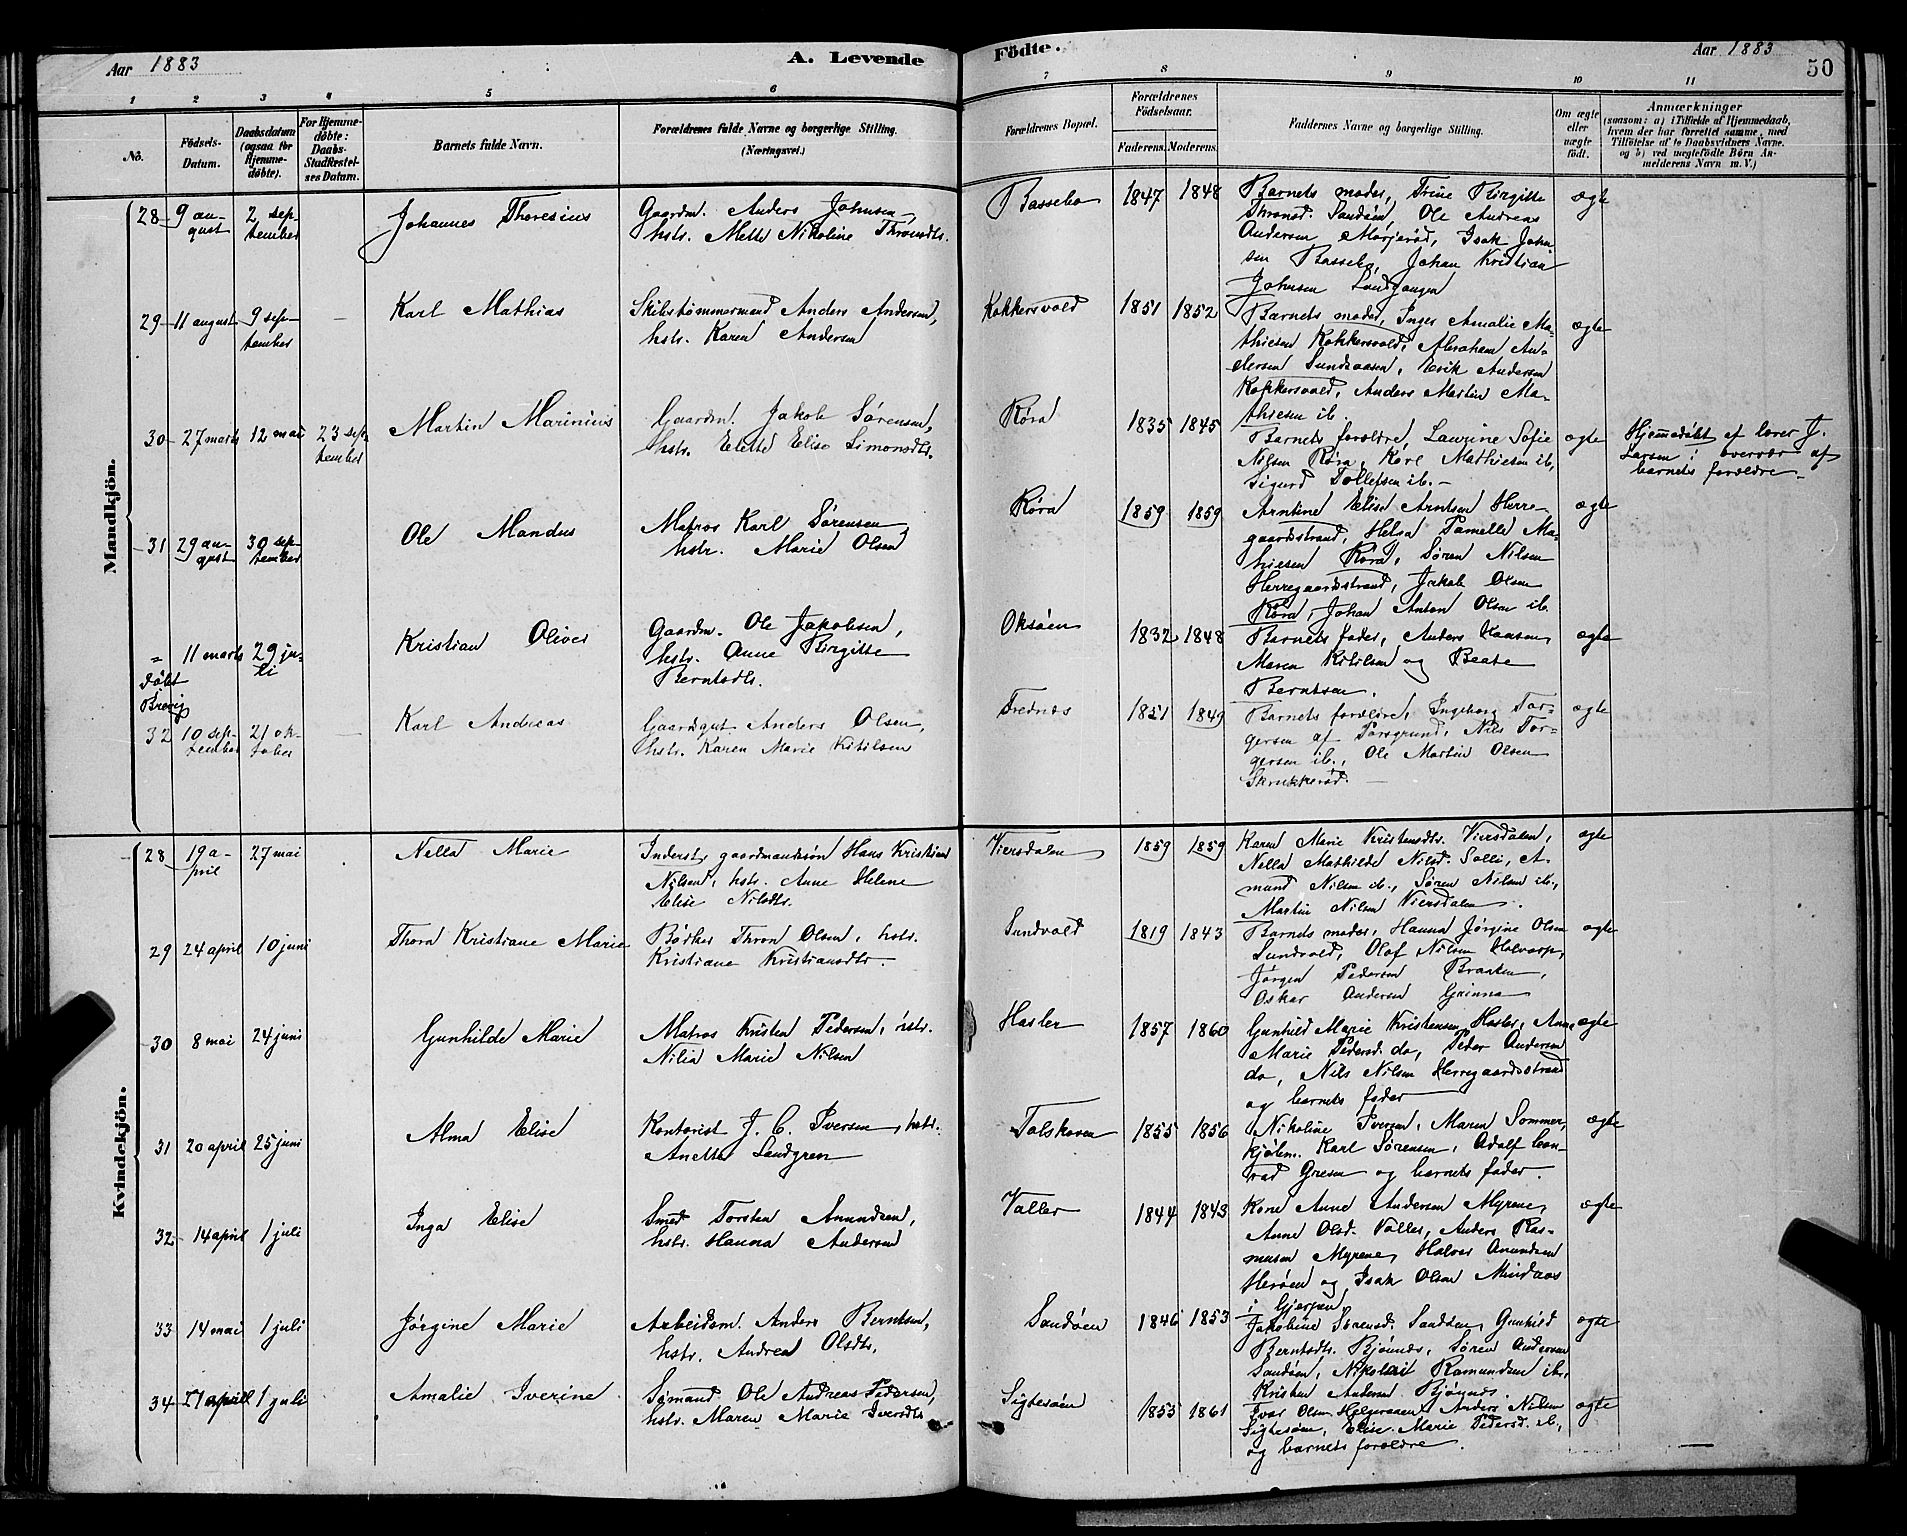 Aar 1883
A. Levende
Födte.
Aar 1883
50
1 2 3 4 5 6 7 8 9 10 11
No.
Födsels-
Datum.
Daabsdatum
(ogsaa for
Hjemme-
döbte).
For Hjemme-
döbte:
Daabs-
Stadfæstel-
ses Datum.
Barnets fulde Navn.
Forældrenes fulde Navne og borgerlige Stilling.
(Næringsvei.)
Forældrenes Bopæl.
Forældrenes
Födselsaar.
Faderens. Moderens.
Faddernes Navne og borgerlige Stilling.
Om ægte
eller
uægte
födt.
Anmærkninger
(saasom: a) i Tilfælde af Hjemmedaab,
hvem der har forrettet samme, med
Tilföielse af to Daabsvidners Navne.
og b) ved uægtefödte Börn An-
melderens Navn m. V.)
Mandkjön.
28 9 au-
gust
2 sep-
tember
Johannes Theresius
Gaardm. Anders Johnsen,
hstr. Mette Nikoline Throndtr.
Bassebo
1847 1848
Barnets moder, Trine Birgitte
Thronsd. Sandøen, Ole Andreas
Andersen Mørjerød, Isak John-
sen Bassebo, Johan Kristian
Johnsen
ægte
29 11 august
9 sep-
tember
Karl Mathias
Skibstømmermand Anders Andersen,
hstr. Karen Andersen
Kokkersvold
1851 1852
Barnets moder, Inger Amalie Ma-
thiesen Kokkersvold, Abraham An-
dersen Sundsaasen, Erik Andersen
Kokkersvold, Anders Martin Ma-
thiesen ib.
ægte
30 27 marts 12 mai 23 sep-
tember
Martin Marinius
Gaardm. Jakob Sørensen,
hstr. Elette Elise Simonsdtr.
Røra
1835 1845
Barnets forældre, Laurine Sofie
Nilsen Røra, Karl Mathiesen ib,
Sigurd Tollefsen ib. -
ægte
Hjemmedøbt af lærer J.
Larsen i overvær af
barnets forældre -
31 29 au-
gust
30 sep-
tember
Ole Mandus
Matros Karl Sørensen,
hstr. Marie Olsen
Røra
1859 1859
Arntine Elise Arntsen Herre-
gaardsstrand, Helea Pamelle Ma-
thiesen Røra, Søren Nilsen
Herregaardsstrand, Jakob Olsen
Røra, Johan Anton Olsen ib.
ægte
"
døbt
Brevig
11 marts 29 ju-
li
Kristian Oliver
Gaardm. Ole Jakobsen,
hstr. Anne Birgitte
Berntsdtr.
Oksøen
1832 1848
Barnets fader, Anders Hansen,
Maren Kitilsen og Beate
Berntsen.
ægte
32 10 sep-
tember
21 ok-
tober
Karl Andreas
Gaardgut Anders Olsen,
hstr. Karen Marie Kitilsen
Frednes
1851 1849
Barnets forældre, Ingeborg Tor-
gersen af Porsgrund, Nils Tor-
gersen ib., Ole Martin Olsen
Skrukkerød.
ægte
Kvindekjön.
28 19 a-
pril
27 mai
Nella Marie
Inderst, gaardmandssøn Hans Kristian
Nilsen, hstr. Anne Helene
Elise Nilsdtr.
Viersdalen
1859 1859
Karen Marie Kristensdtr. Viersdalen,
Nella Mathilde Nilsd. Solli, A-
mund Nilsen ib., Søren Nilsen ib.,
Martin Nilsen Viersdalen.
ægte
29 24 april 10 juni
Thora Kristiane Marie
Bødker Thron Olsen, hstr.
Kristiane Kristiansdtr.
Sundvold
1819 1843
Barnets moder, Hanna Jørgine Olsen
Sundvold, Olaf Nilsen Halvarp,
Jørgen Pedersen Braaten,
Oskar Andersen Grinna
ægte
30 8 mai 24 juni
Gunhilde Marie
Matros Kristen Pedersen, hstr.
Nilia Marie Nilsen
Hasler
1857 1860
Gunhild Marie Kristensen Hasler, Anne
Marie Pedersd. do, Peder Andersen
do, Nils Nilsen Herregaardsstrand
og barnets fader
ægte
31 20 april 25 juni
Alma Elise
Kontorist J. C. Iversen, hstr.
Anette Landgren
Tolskoven
1855 1856
Nikoline Iversen, Maren Sommer,
kjølen. Karl Sørensen, Adolf Con-
rad Gresen og barnets fader.
ægte
32 14 april 1 juli
Inga Elise
Smed Torsten Amundsen,
hstr. Hanna Andersen
Valler
1844 1843
Kone Anne Andersen Myrene,
Anne Olsd. Valler, Anders Ras-
musen Myrene, Halvor Amundsen
Herøen og Isak Olsen
i Gjerpen
ægte
33 14 mai 1 juli
Jørgine Marie
Arbeidsm. Anders Berntsen,
hstr. Andrea Olsdtr.
Sandøen
1846 1853
Jakobine Sørensd. Sandøen, Gunhild
Berntsdtr. Bjønnes, Søren Andersen
Sandøen, Nikolai Ramundsen ib.,
Kristen Andersen Bjønnes.
ægte
34 21 april 1 juli
Amalie Iverine
Sømand Ole Andreas Pedersen,
hstr. Maren Marie Iversdtr.
Sigtesøen
1855 1861
Ivar Olsen Helgeraaen, Anders Nilsen
Sigtesøen, Elise Marie Pedersd. ib.,
og barnets forældre.
ægte